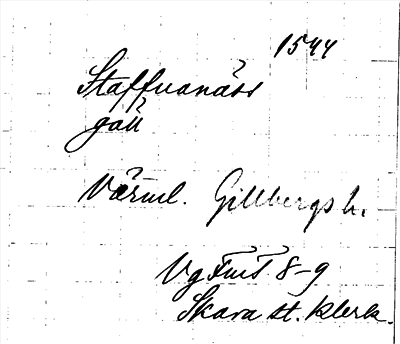 1544
Staffnanäss
gäll
Värml. Gillbergs h.
VgFmT 8-9
Skara st. klerk.